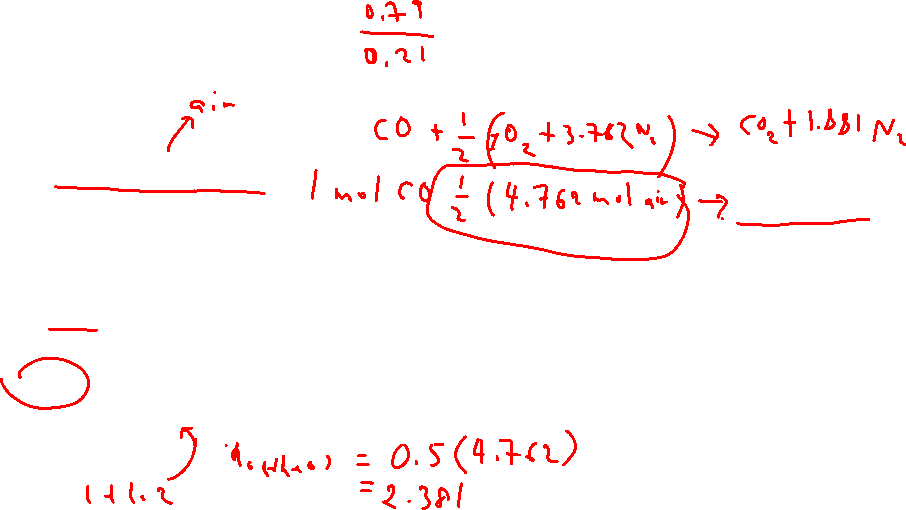 0.79
0.21
air
CO + 1/2 (O₂ + 3.762 N₂) → CO₂ + 1.881 N₂
1 mol CO 1/2 (4.762 mol air) →
= 0.5 (4.762)
1+1.2
= 2.381